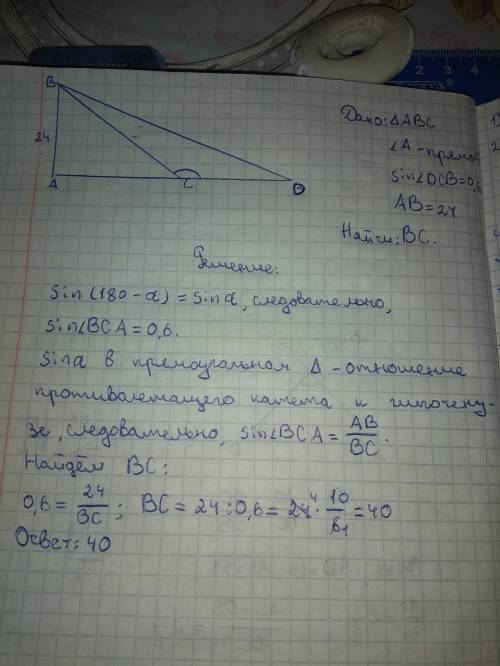 B
24
A
C
D
Дано: ΔABC
∠A - прямой
sin∠DCB=0,6
AB=24
Найти: BC.
Решение:
sin(180-α)=sinα, следовательно,
sin∠BCA=0,6.
sinα в прямоугольном Δ - отношение
противолежащего катета к гипотену-
зе, следовательно, sin∠BCA = AB/BC.
Найдём BC:
0,6 = 24/BC; BC = 24:0,6 = 24 4 · 10/6 1 = 40
Ответ: 40
2 3 4